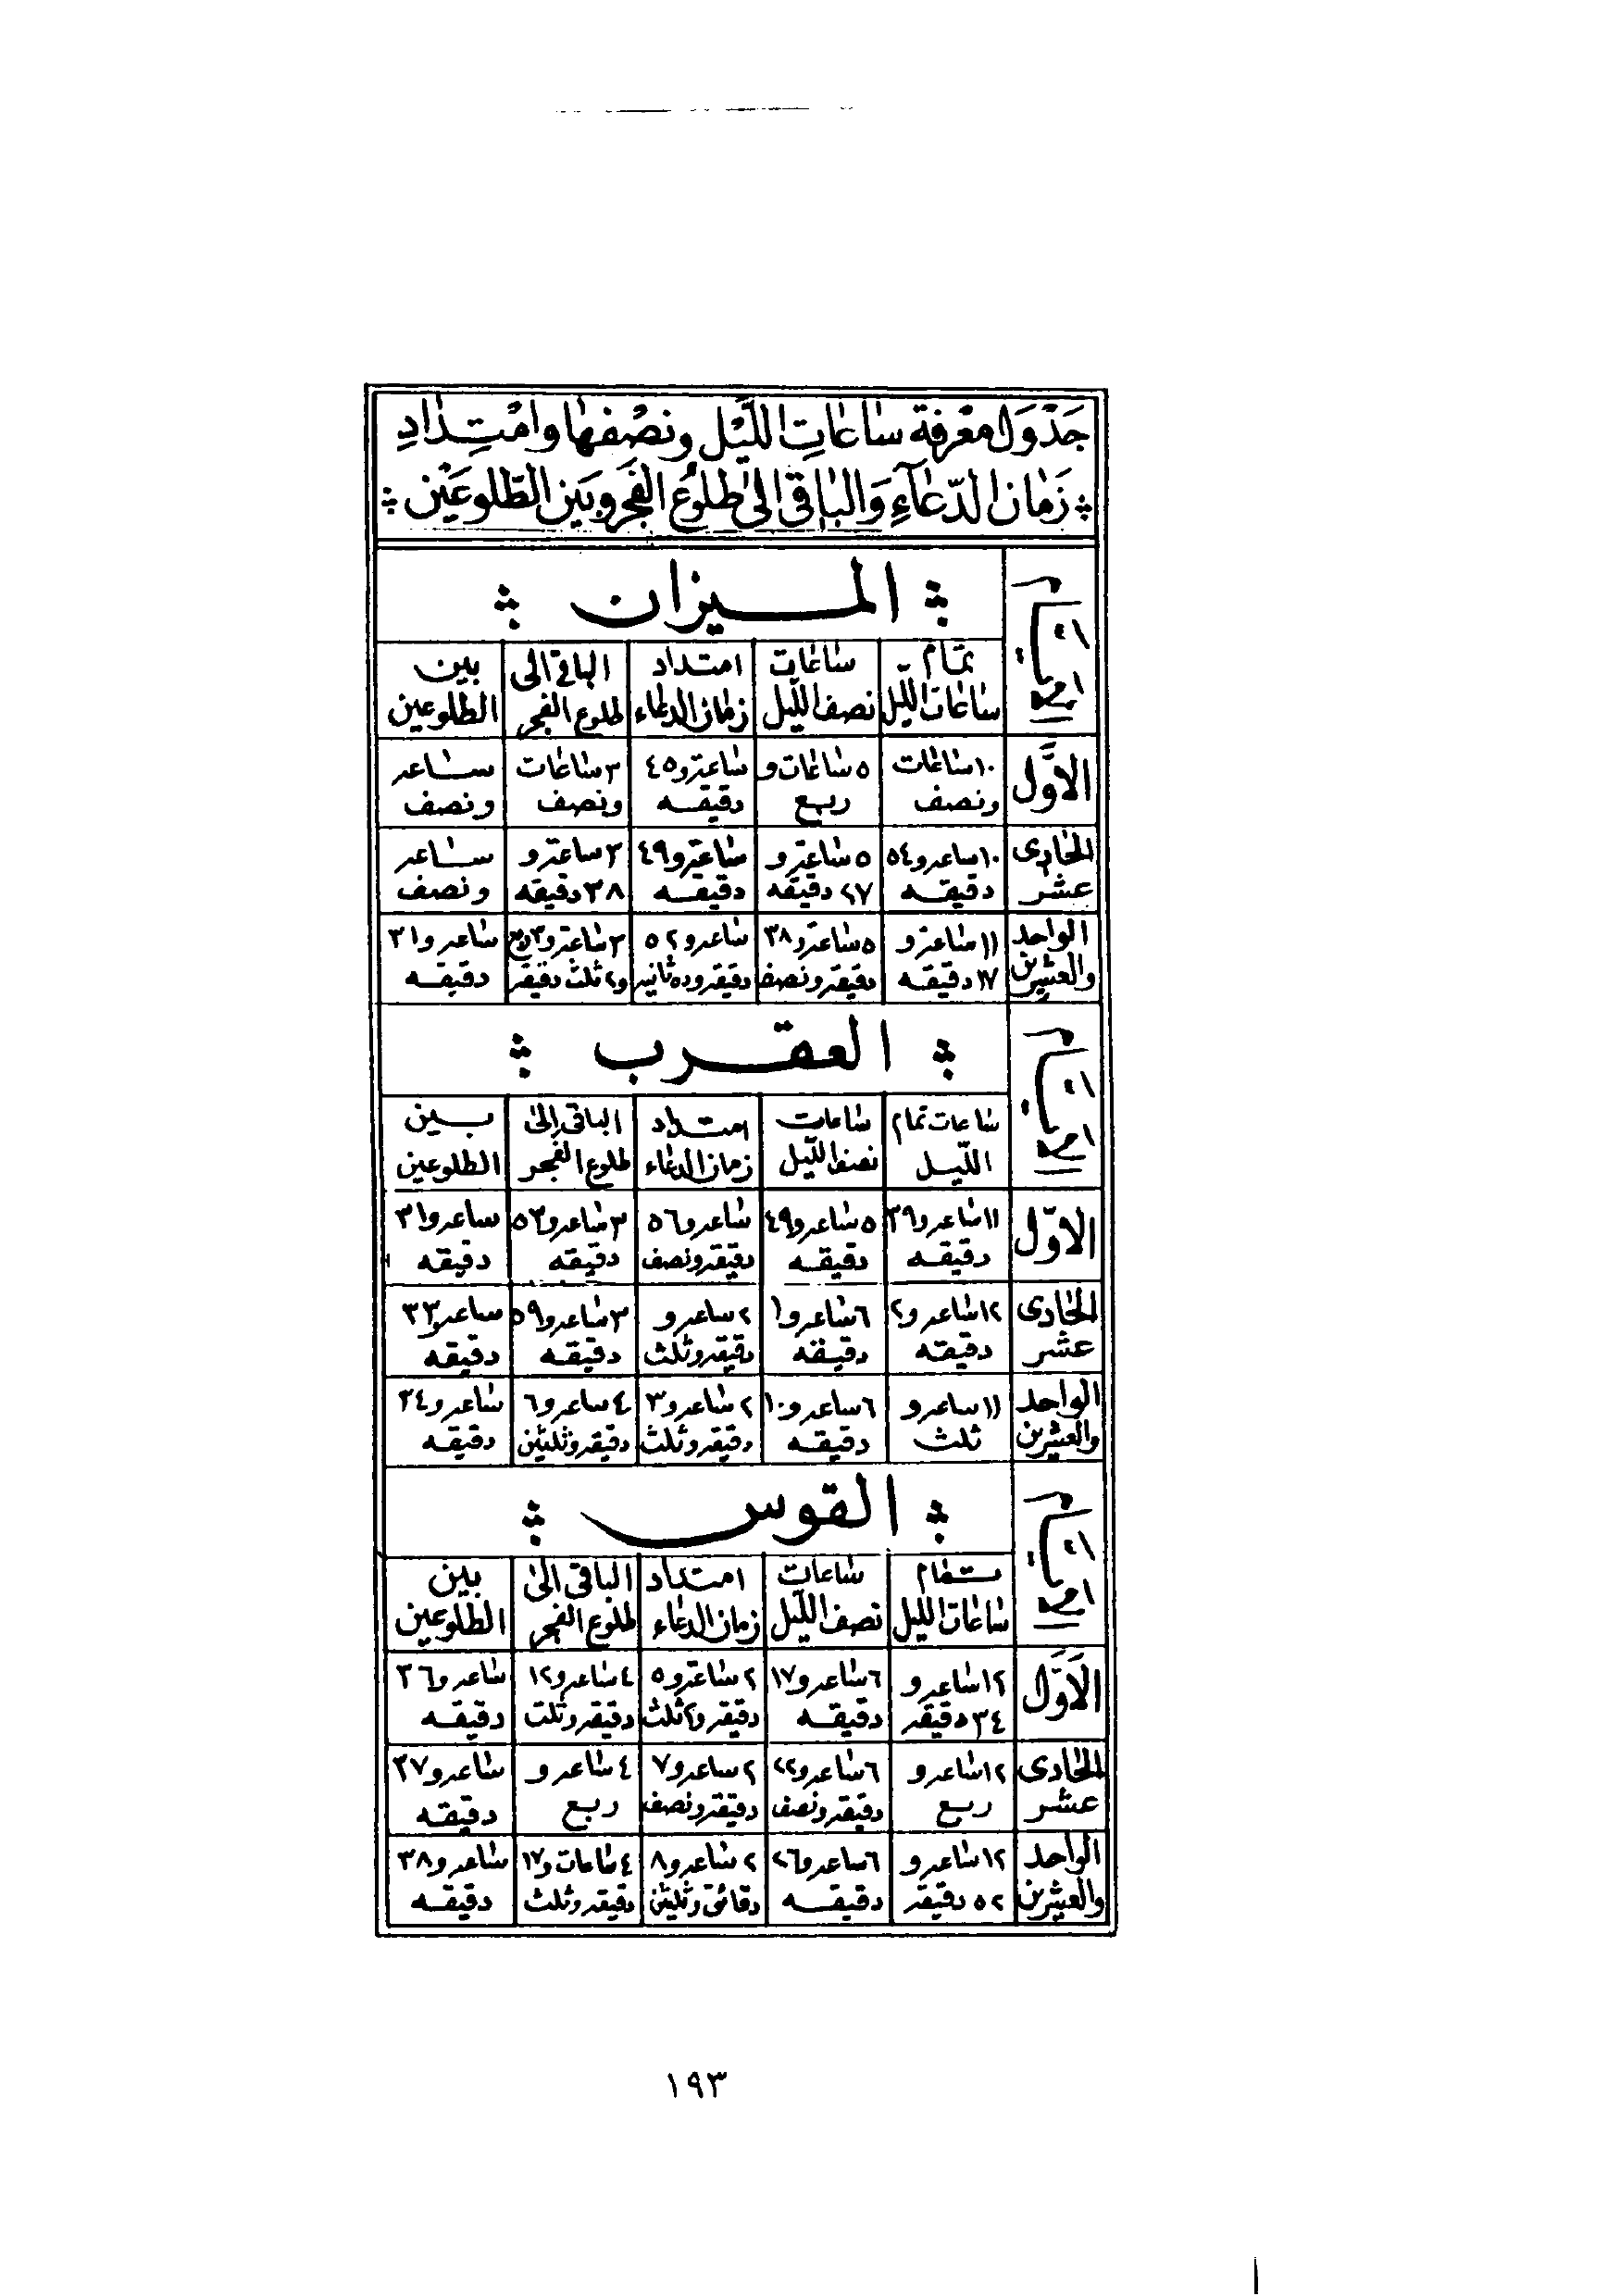 جَدْوَل مَعْرِفَة سَاعَاتِ اللَّيْل وَنِصْفِهَا وَامْتِدَادِ
زَمَانِ الدُّعَاءِ وَالبَاقِي إِلىٰ طُلُوعِ الفَجْرِ وَبَيْنَ الطُّلُوعَيْن
الميزان
تمام ساعات اللّيل
ساعات نصف اللّيل
امتداد زمان الدعاء
الباقي الى طلوع الفجر
بين الطلوعين
الاوّل
١٠ ساعات ونصف
٥ ساعات و ربع
ساعة و٤٥ دقيقه
٣ ساعات ونصف
ساعه ونصف
الحادى عشر
١٠ ساعه و٥٤ دقيقه
٥ ساعة و ٢٧ دقيقه
ساعة و٤٩ دقيقه
٣ ساعة و ٣٨ دقيقه
ساعه ونصف
الواحد والعشرين
١١ ساعة و ١٧ دقيقه
٥ ساعة و٣٨ دقيقه ونصف
ساعه و٥٢ دقيقه و٥٥ ثانيه
٣ ساعة و٣ اربع و٢ ثلث دقيقه
ساعه و٣١ دقيقه
العقرب
ساعات تمام اللّيل
ساعات نصف اللّيل
امتداد زمان الدعاء
الباقى إلى طلوع الفجر
بين الطلوعين
الاوّل
١١ ساعه و٣٩ دقيقه
٥ ساعه و٤٩ دقيقه
ساعه و٥٦ دقيقه ونصف
٣ ساعه و٥٣ دقيقه
ساعه و٣١ دقيقه
الحادى عشر
١٢ ساعه و٢ دقيقه
٦ ساعه و١ دقيقه
٢ ساعه و دقيقه وثلث
٣ ساعه و٥٩ دقيقه
ساعه و٣٣ دقيقه
الواحد والعشرين
١١ ساعه و ثلث
٦ ساعه و١٠ دقيقه
٢ ساعه و٣ دقيقه وثلث
٤ ساعه و٦ دقيقه وثلثين
ساعه و٣٤ دقيقه
القوس
تمام ساعات الليل
ساعات نصف اللّيل
امتداد زمان الدعاء
الباقى الى طلوع الفجر
بين الطلوعين
الاَوّل
١٢ ساعه و ٣٤ دقيقه
٦ ساعه و١٧ دقيقه
٢ ساعة و٥ دقيقه و٢ ثلث
٤ ساعه و١٢ دقيقه وثلث
ساعه و٣٦ دقيقه
الحادى عشر
١٢ ساعه و ربع
٦ ساعه و٢٢ دقيقه ونصف
٢ ساعه و٧ دقيقه ونصف
٤ ساعه و ربع
ساعه و٣٧ دقيقه
الواحد والعشرين
١٢ ساعه و ٥٢ دقيقه
٦ ساعه و٢٦ دقيقه
٢ ساعه و٨ دقائق وثلثين
٤ ساعات و١٧ دقيقه وثلث
ساعه و٣٨ دقيقه
١٩٣